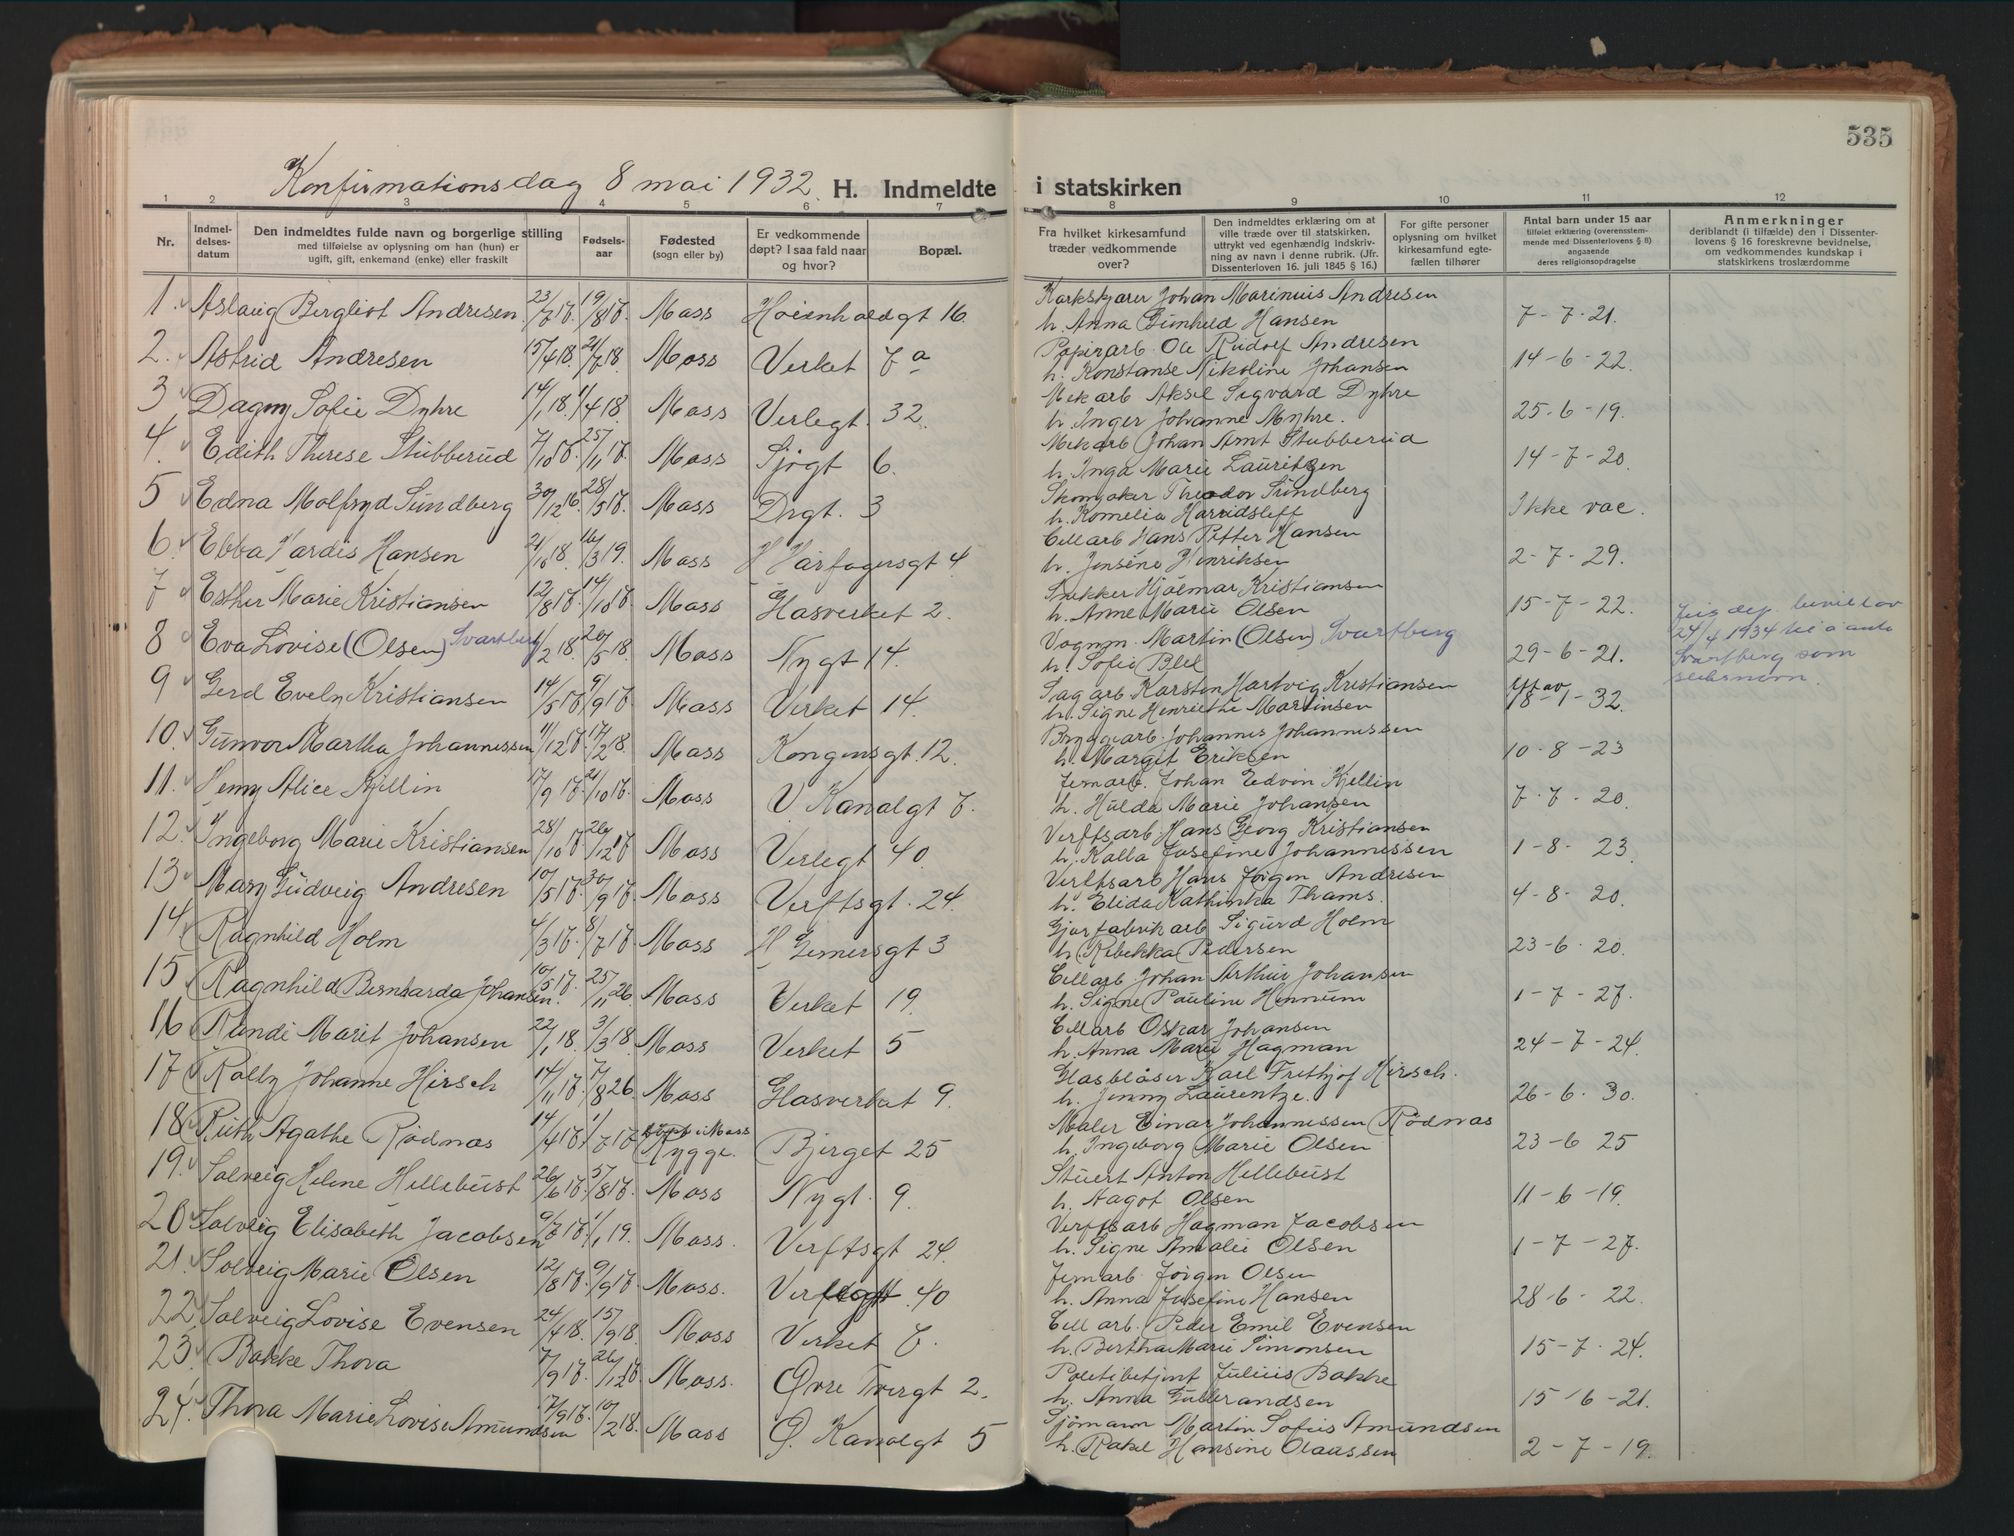 535
Konfirmationsdag 8 mai 1932. H. Indmeldte i statskirken
1 2 3 4 5 6 7 8 9 10 11 12
Nr.
Indmel-
delses-
datum
Den indmeldtes fulde navn og borgerlige stilling
med tilføielse av oplysning om han (hun) er
ugift, gift, enkemand (enke) eller fraskilt
Fødsels-
aar
Fødested
(sogn eller by)
Er vedkommende
døpt? I saa fald naar
og hvor?
Bopæl.
Fra hvilket kirkesamfund
træder vedkommende
over?
Den indmeldtes erklæring om at
ville træde over til statskirken,
uttrykt ved egenhændig indskriv-
ning av navn i denne rubrik. (Jfr.
Dissenterloven 16. juli 1845 § 16.)
For gifte personer
oplysning om hvilket
kirkesamfund egte-
fællen tilhører
Antal barn under 15 aar
tilføiet erklæring (overensstem-
mende med Dissenterlovens § 8)
angaaende
deres religionsopdragelse
Anmerkninger
deriblandt (i tilfælde) den i Dissenter-
lovens § 16 foreskrevne bevidnelse,
om vedkommendes kundskap i
statskirkens troslærdomme
1. Aslaug Bergliot Andresen 23/7 17. 19/8 17. Moss Høienhaldgt 16 Korkskjærer Johan Marinius Andresen
h. Anna Gunhild Hansen 7-7-21.
2. Astrid Andresen 15/4 18. 21/7 18. Moss Verket 7a Papirarb. Ole Rudolf Andresen
h. Konstanse Nikoline Johansen 14-6-22.
3. Dagny Sofie Dyhre 14/1 18. 1/4 18 Moss Verlegt. 32. Mek arb Aksel Sigvard Dyhre
h. Inger Johanne Myhre. 25-6-19.
4. Edith Therese Stubberud 7/10 17. 25/11 17. Moss Sjøgt 6. Mek arb Johan Arnt Stubberud
h. Inga Marie Lauritzen 14-7-20.
5 Edna Molfryd Sundberg 30/12 16. 28/5 17. Moss Drgt. 3 Skomaker Theodor Sundberg
h. Kornelia Harridsleff Ikke vac.
6. Ebba Vardis Hansen 21/10 18. 16/3 19. Moss H Harfagersgt 4. Cell arb Hans Petter Hansen
h. Jensine Henriksen 2-7-29.
7 Esther Marie Kristiansen 12/8 17. 14/10 17. Moss Glasverket 2. Snekker Hjalmar Kristiansen
h. Anne Marie Olsen 15-7-22.
8 Eva Lovise (Olsen) Svartberg 1/2 18. 20/5 18. Moss Nygt 14. Vognm. Martin (Olsen) Svartberg
h. Sofie Blel 29-6-21.
24/4 1934 til å anta
Svartberg som
slektsnavn.
9 Gerd Evelyn Kristiansen 14/5 17 9/9 17 Moss Verket 14. Sag arb. Karsten Hartvig Kristiansen
h. Signe Henriethe Martinsen 18-1-32.
10. Gunvor Martha Johannessen 11/12 17. 17/2 18. Moss Kongensgt. 12. Bryggearb. Johannes Johannessen
h. Margit Eriksen 10-8-23
11. Henny Alice Kjellin 17/9 17. 21/10 17. Moss V. Kanalgt 7. Jernarb. Johan Edvin Kjellin
h. Hulda Marie Johansen 7-7-20.
12. Ingeborg Marie Kristiansen 28/10 17. 26/12 17 Moss Verlegt 40 Verftsarb. Hans Georg Kristiansen
h. Kalla Josefine Johannessen 1-8-23.
13. Mary Gudveig Andresen 10/5 17. 30/9 17. Moss Verftsgt. 24. Verftsarb Hans Jørgen Andresen
h. Elida Kathinka Thams. 4-8-20.
14 Ragnhild Holm 4/3 17. 8/7 17 Moss H Gernersgt 3 Gjærfabrik arb Sigurd Holm
h. Rebekka Pedersen 23-6-20.
15 Ragnhild Bernharda Johansen. 10/5 17. 25/11 26 Moss Verket 19. Cellarb Johan Arthur Johansen
h. Signe Pauline Hennum 1-7-27.
16 Rundi Marit Johansen 22/1 18. 3/3 18. Moss Verket 5 Cellarb Oskar Johansen
h. Anna Marie Hagman 24-7-24.
17 Rolly Johanne Hirsch 14/11 17. 7/8 26. Moss Glasverket 9. Glasblåser Karl Frithjof Hirsch.
h. Jenny Laurentze. 26-6-30.
18 Ruth Agathe Rødnas 14/4 17. 1/7 17 Døpt i Moss
Rygge. Bjerget 25 Maler Einar Johannessen Rødnas
h. Ingeborg Marie Olsen 23-6 25
19. Solveig Helene Hellebust 26/6 17. 5/8 17. Moss Nygt. 9. Stuert Anton Hellebust
h. Aagot Olsen 11-6-19.
20 Solveig Elisabeth Jacobsen 9/7 17. 1/1 19. Moss. Verftsgt 24. Verftsarb Hagman Jacobsen
h. Signe Amalie Olsen 1-7-27.
21. Solveig Marie Olsen 12/8 17. 9/9 17. Moss. 40 Jernarb. Jørgen Olsen
h. Anna Josefine Hansen 28-6-22.
22 Solveig Lovise Evensen 24/4 18. 15/9 18. Moss Verket 7. Cell arb. Peder Emil Evensen
h. Bertha Marie Simonsen 15-7-24.
23. Bakke Thora 7/9 17. 26/12 17. Moss. Øvre Tvergt 2. Politibetjent Julius Bakke
h. Anna Gulbrandsen 15-6-21.
24. Thora Marie Lovise Amundsen 17/9 17. 10/2 18. Moss Ø. Kanalgt 5 Sjømann Martin Sofus Amundsen
h. Rakel Hansine Olaussen 2-7-19.